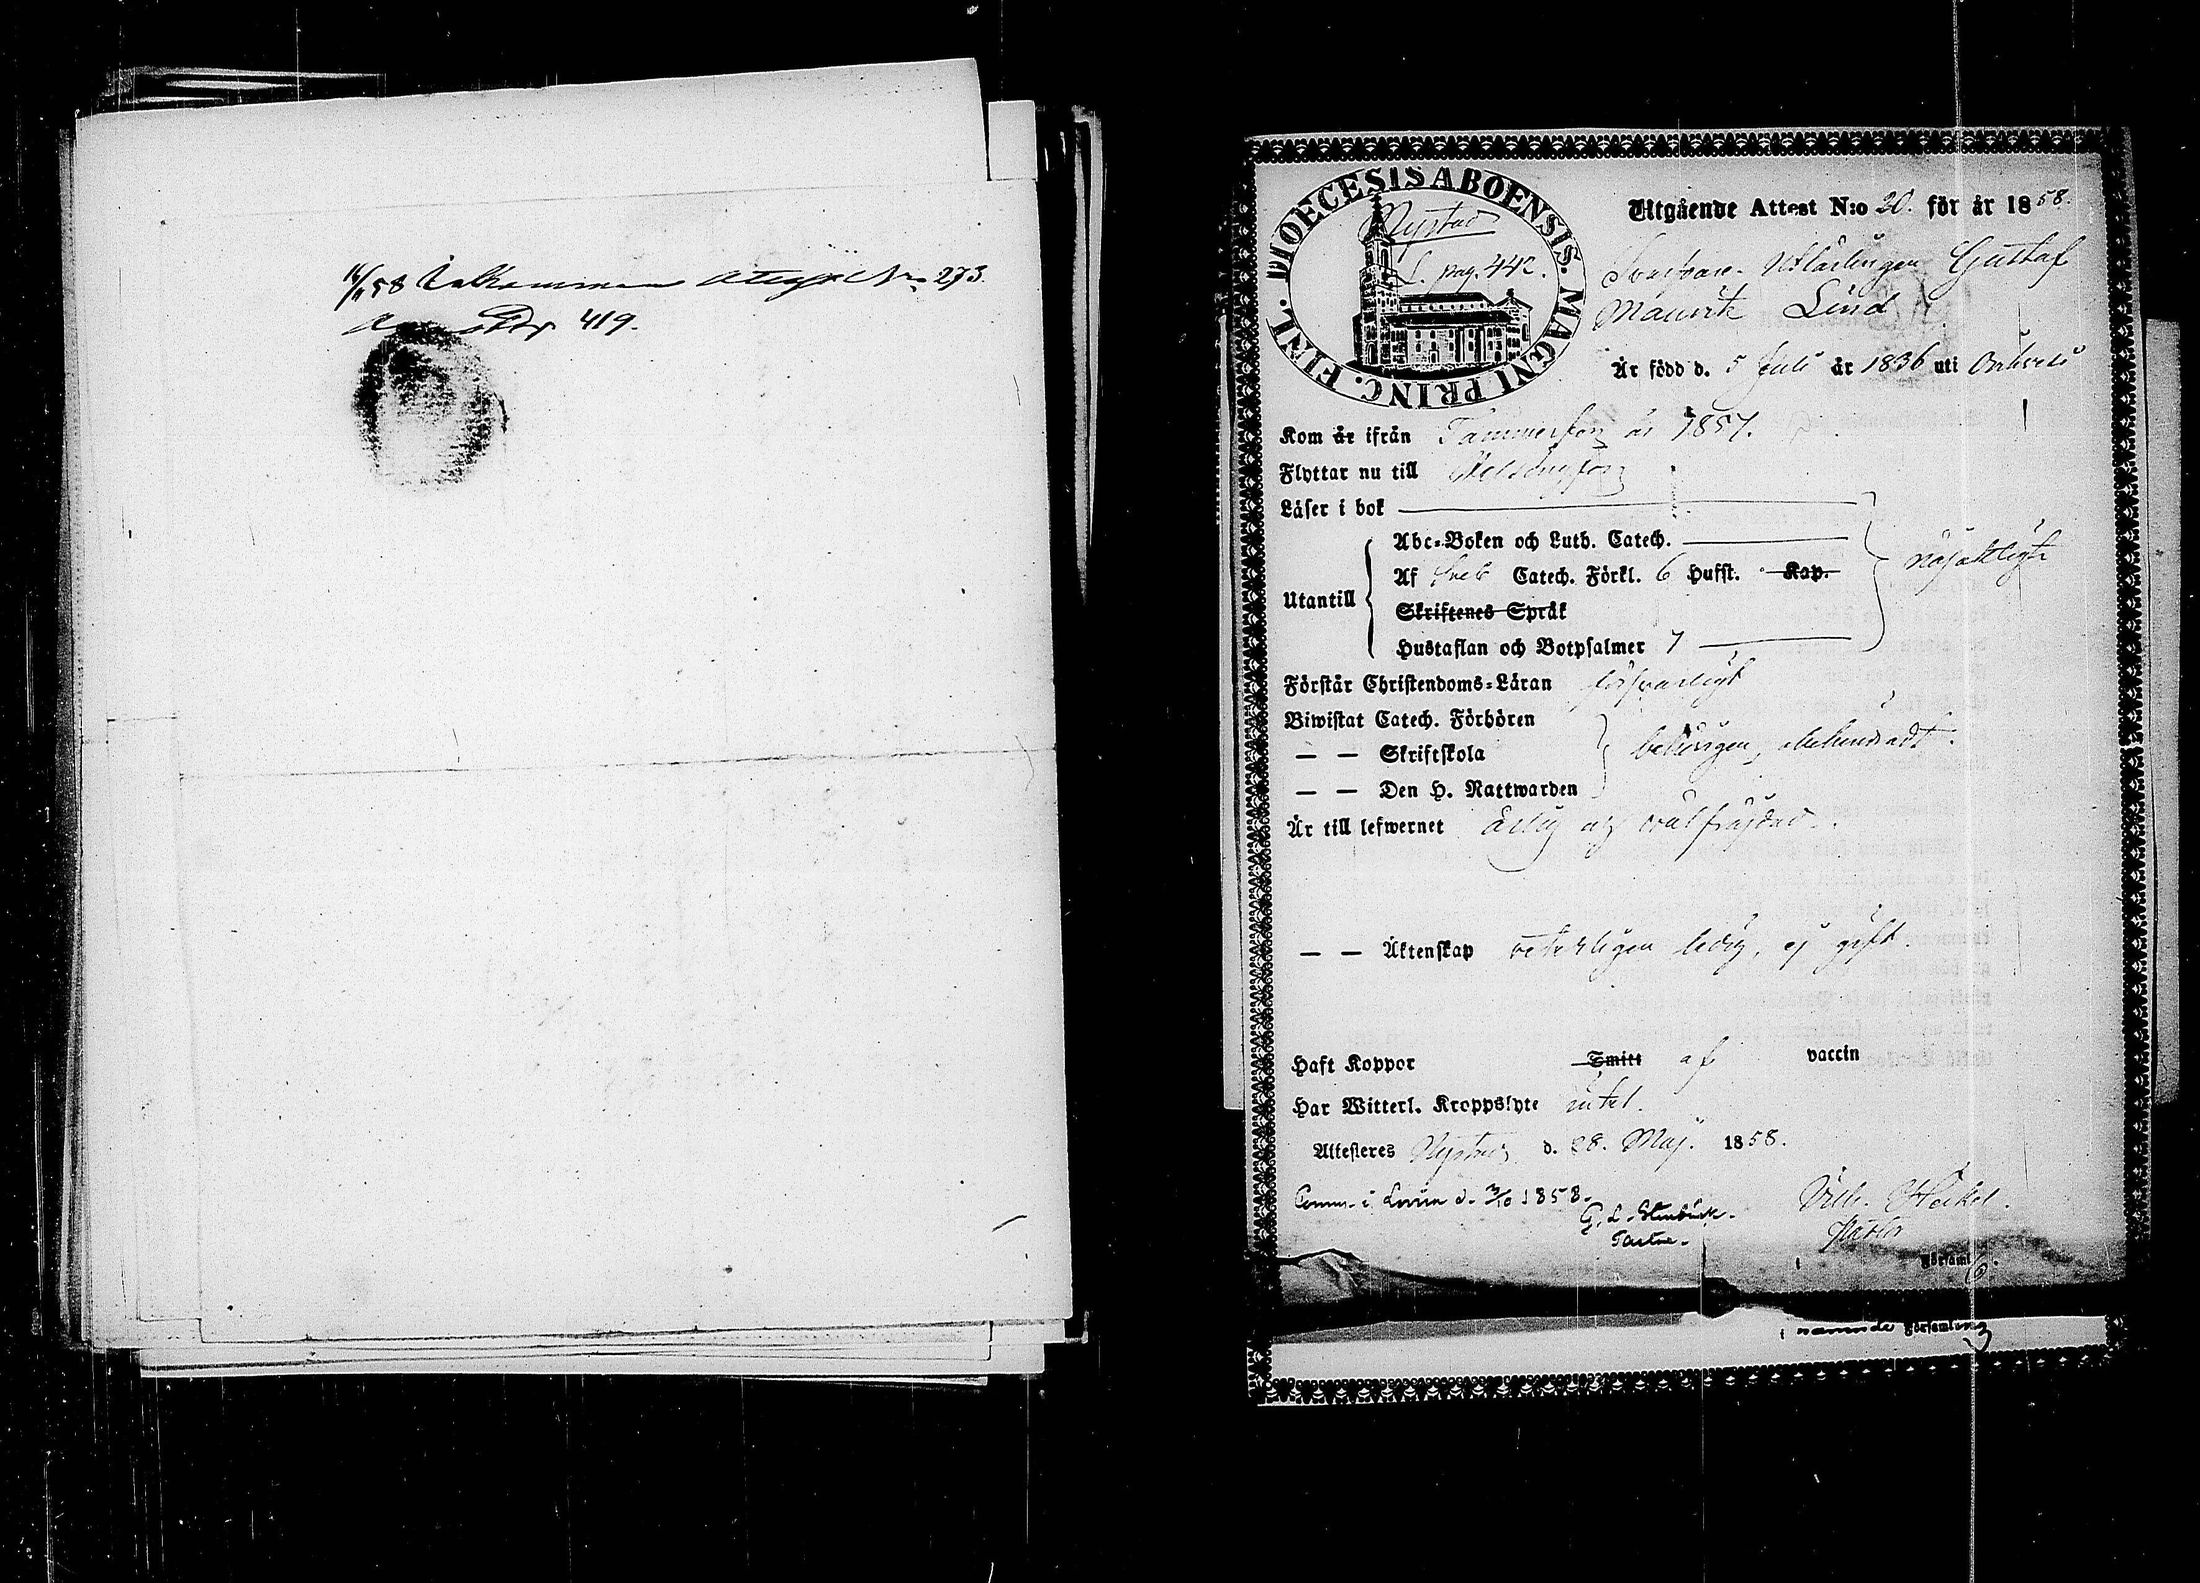 14/11 58 Inkommen Attest No 273.
419.
DIOECESIS ABOENSIS. MAGNI PRINC. FINL.
Nystad
L. pag. 442.
Utgående Attest N:o 20. för år 1858.
Svarfvare Lärlingen Gustaf
Maurits Lind
Är född d. 5 Juli år 1836 uti
Kom år ifrån Tammerfors år 1857.
Flyttar nu till Helsingfors
Läser i bok
Utantill
Abc-Boken och Luth. Catech.
Af Sveb Catech. Förkl. 6 Hufst. Kap.
Skriftenes Språk
Hustaflan och Botpsalmer 7
nöjaktligt
Förstår Christendoms-Läran försvarligt
Biwistat Catech. Förhören
— — Skriftskola
— — Den H. Nattwarden
behörigen, obehindradt.
Är till lefwernet ärlig och välfräjdad.
— — Äktenskap veterligen ledig, ej gift.
Haft Koppor Smitt af vaccin
Har Witterl. Kroppslyte intet.
Attesteras Nystad d. 28. Maj. 1858.
Comm. i Lovisa d. 3/10 1858.
G. L. Stenbäck.
Pastor.
Vilh. Heikel.
Pastor
i Församl.
i nämnde Församling